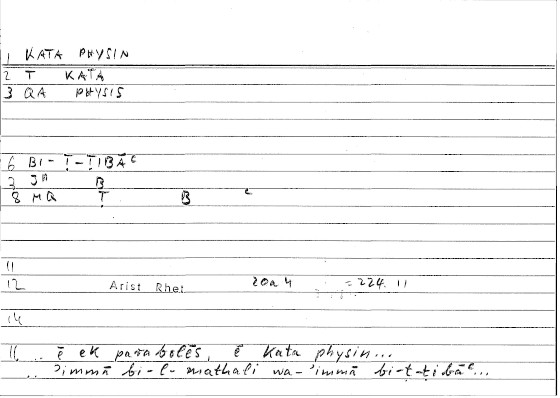 1 KATA PHYSIN
2 T KATA
3 QA PHYSIS
6 BI-Ṭ-ṬIBĀᶜ
B
8 MQ Ṭ B ᶜ
11
12 Arist Rhet 20a4 =224.11
14
.. ē ek parabolēs, ē kata physin...
.. ʾimmā bi-l-mathali wa-ʾimmā bi-ṭ-ṭibāᶜ...